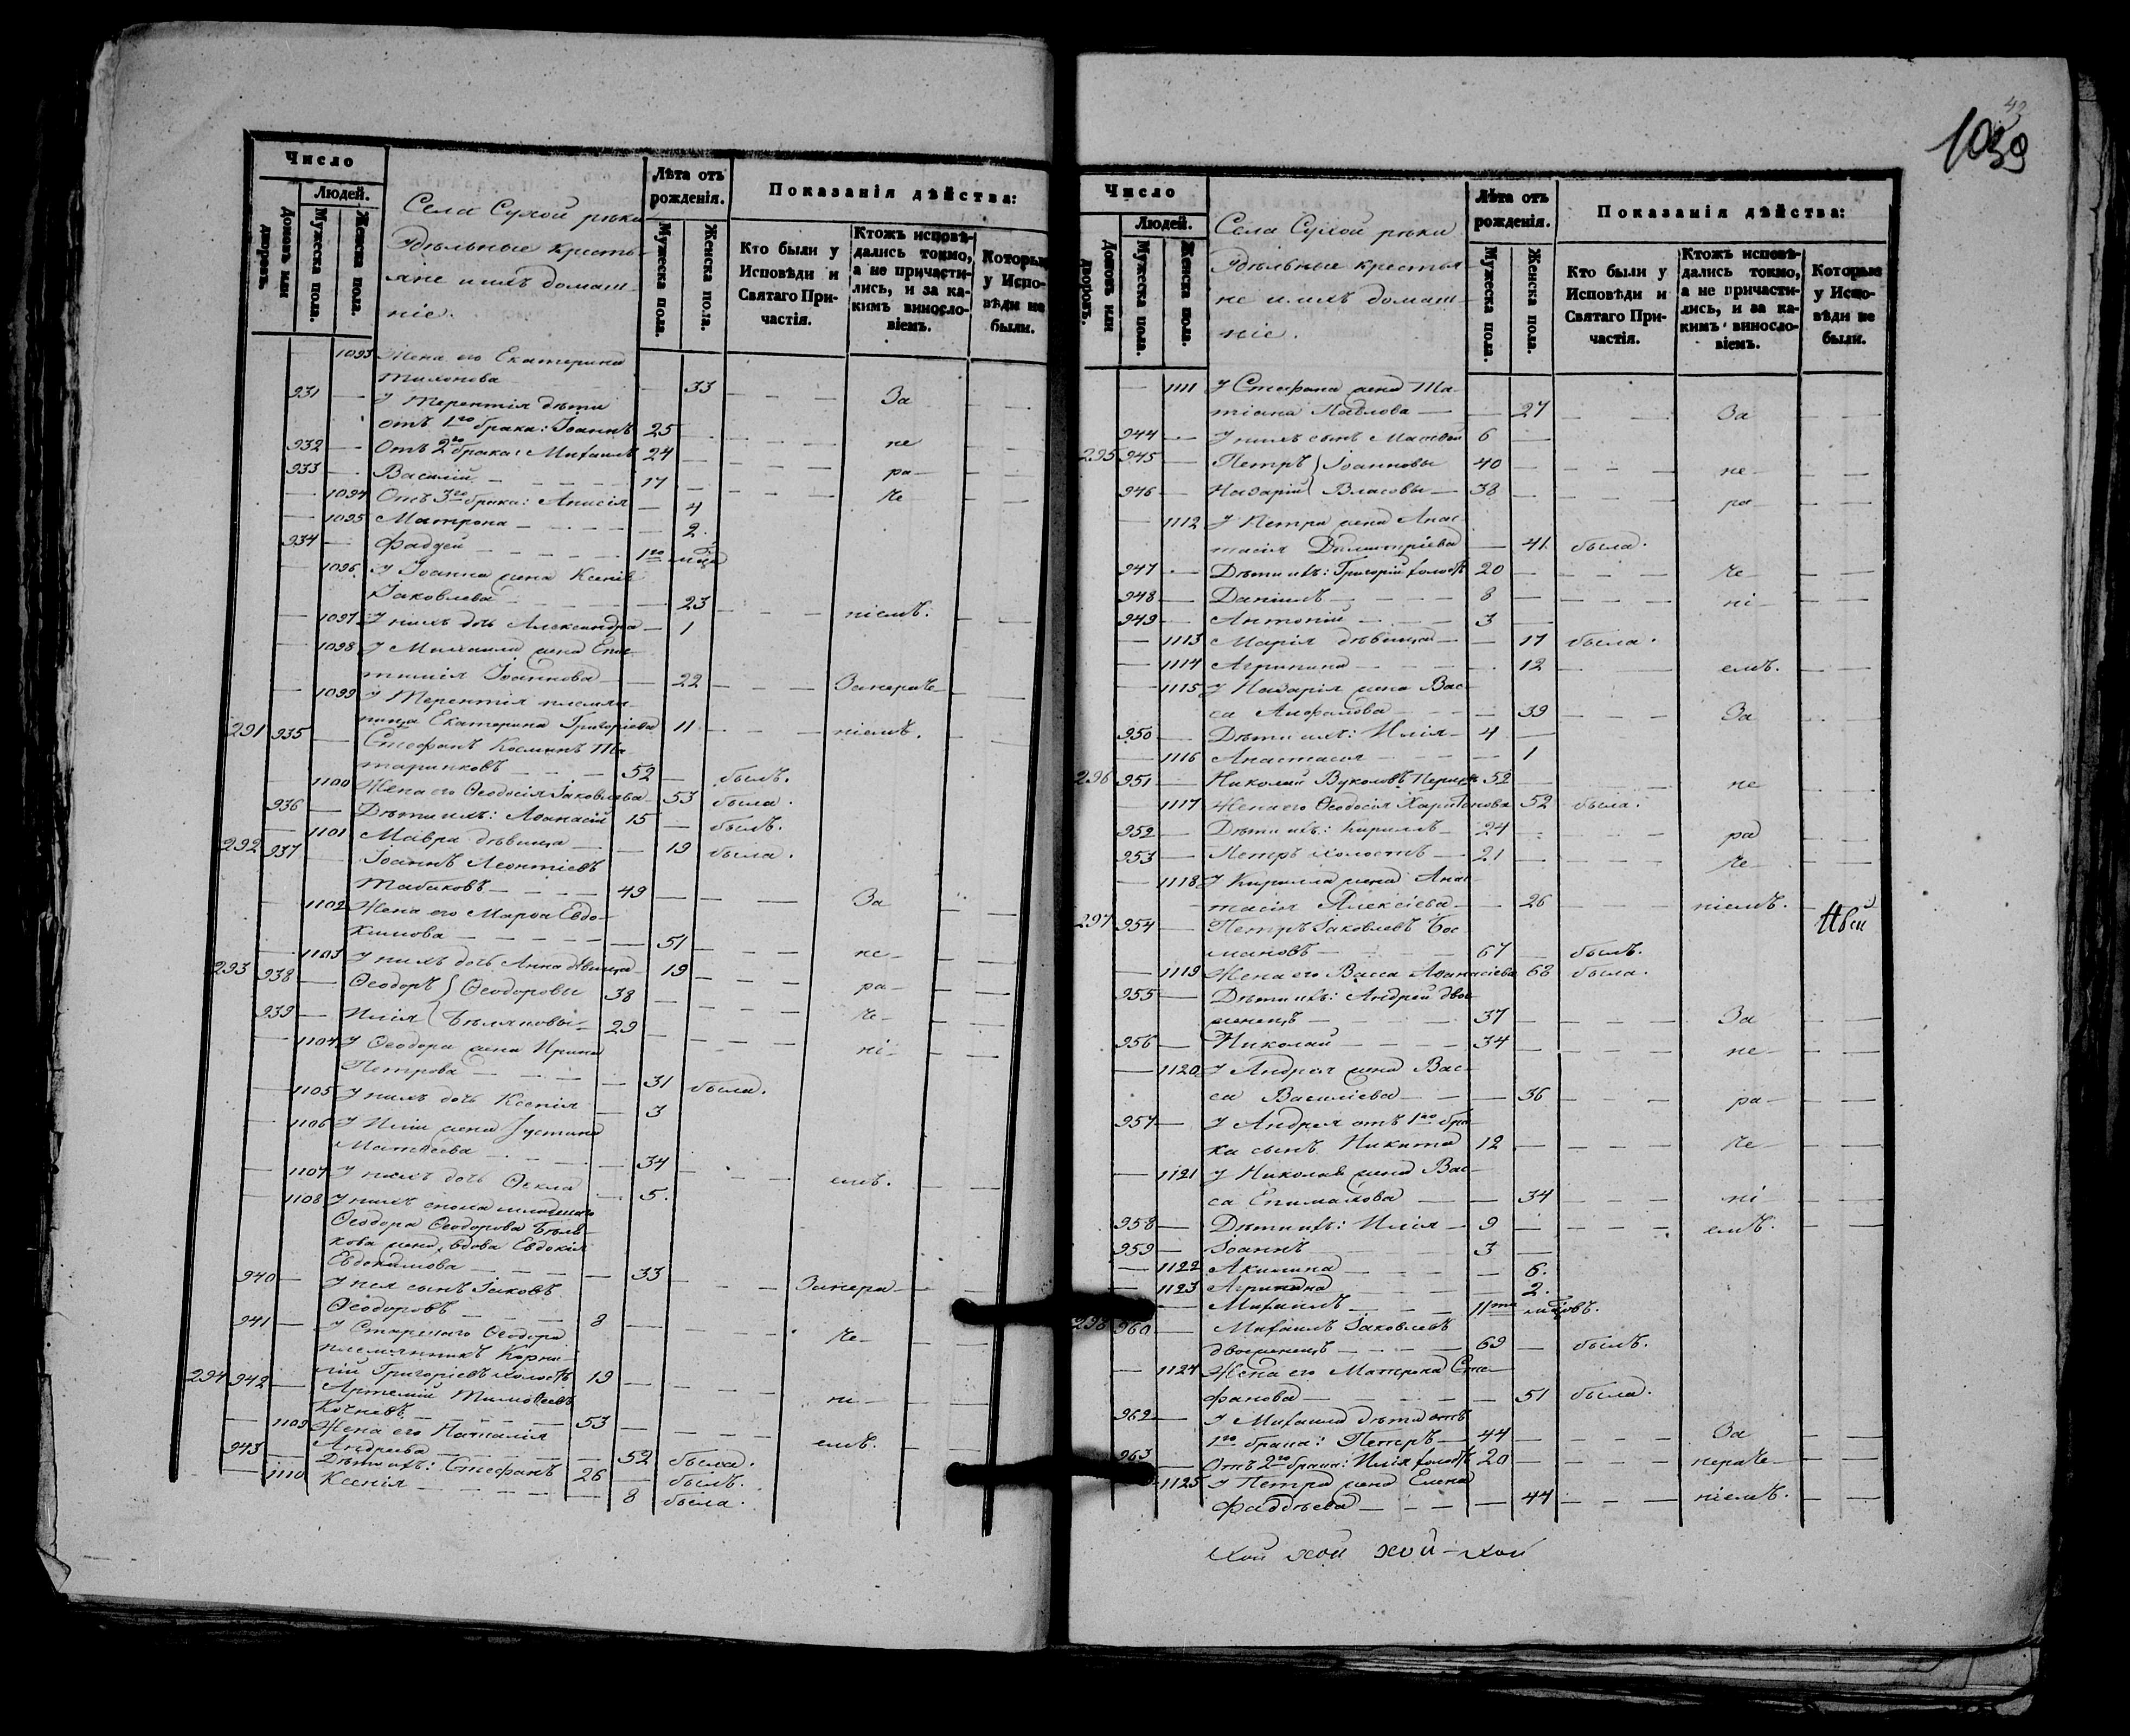 Число
Людей.
Домовъ или дворовъ.
Мужеска пола.
Женска пола.
Села Сухой рѣки
Удѣльные кресть-
яне и ихъ домаш-
ніе.
Лѣта отъ рожденія.
Мужеска пола.
Женска пола.
Показанія дѣйства:
Кто были у Исповѣди и Святаго Причастія.
Ктожъ исповѣ-
дались токмо,
а не причасти-
лись, и за ка-
кимъ виносло-
віемъ.
Которые
у Испо-
вѣди не
были.
1093 Жена его Екатерина
Тихонова — 33 — За
931 У Терентія дѣти
отъ 1го брака: Іоаннъ 25 — не
932 Отъ 2го брака: Михаилъ 24 — ра-
933 Василій — 17 — че
1094 Отъ 3го брака: Анисія — 4
1095 Матрона — 2.
934 Фадей — 1го мѣца
1096 У Іоанна жена Ксенія
Іаковлева — 23 — ніемъ.
1097 У нихъ дочь Александра — 1
1098 У Михаила жена
Іоаннова — 22 — Занераче-
1099 У Терентія племян-
ница Екатерина Григоріева 11 — ніемъ.
291 935 Стефанъ Косминъ Та-
таринковъ — 52 — былъ.
1100 Жена его Ѳеодосія Іаковлева 53 была.
936 Дѣти ихъ: Аѳанасій 15 — былъ.
1101 Мавра дѣвица — 19 была.
292 937 Іоаннъ Леонтіевъ
Табаковъ — 49 — За
1102 Жена его Марѳа Евдо-
кимова — 51 — не-
1103 У нихъ дочь Анна дѣвица 19 — ра-
293 938 Ѳеодоръ } Ѳеодоровы 38 — че-
939 Илія } Бѣляковы 29 — ні-
1104 У Ѳеодора жена Ирина
Петрова — 31 была.
1105 У нихъ дочь Ксенія — 3
1106 У Иліи жена Іустина
Матѳеева — 34 — емъ.
1107 У нихъ дочь Ѳекла — 5.
1108 У нихъ сноха младшаго
Ѳеодора Ѳеодорова Бѣля-
кова жена, вдова Евдокія
Евдокимова — 33 — Занера-
940 У нея сынъ Іаковъ
Ѳеодоровъ — 8 — че-
941 У Старшаго Ѳеодора
племянникъ Корни-
лій Григоріевъ холостъ 19 — ні-
294 942 Артемій Тимоѳеевъ
Кочневъ — 53 — емъ.
1109 Жена его Наталія
Андреева — 52 была.
943 Дѣти ихъ: Стефанъ 26 — былъ.
1110 Ксенія — 8 была.
43
1039
Число
Людей.
Домовъ или дворовъ.
Мужеска пола.
Женска пола.
Села Сухой рѣки
Удѣльные крестья-
не и ихъ домаш-
ніе.
Лѣта отъ рожденія.
Мужеска пола.
Женска пола.
Показанія дѣйства:
Кто были у Исповѣди и Святаго Причастія.
Ктожъ исповѣ-
дались токмо,
а не причасти-
лись, и за ка-
кимъ виносло-
віемъ.
Которые
у Испо-
вѣди не
были.
1111 У Стефана жена Та-
тіана Павлова — 27 — За
944 У нихъ сынъ Матѳей 6
295 945 Петръ } Іоанновы 40 — не-
946 Назарій } Власовы 38 — ра-
1112 У Петра жена Анас-
тасія Димитріева — 41 была.
947 Дѣти ихъ: Григорій холостъ 20 — че-
948 Даніилъ — 8 — ні-
949 Антоній — 3
1113 Марія дѣвица — 17 была.
1114 Агрипина — 12 — емъ.
1115 У Назарія жена Вас-
са — 39 — За
950 Дѣти ихъ: Илія 4
1116 Анастасія — 1
296 951 Николай Вуколовъ 52 — не
1117 Жена его Ѳеодосія Харитонова 52 была.
952 Дѣти ихъ: Кириллъ 24 — ра
953 Петръ холостъ 21 — че
1118 У Кирилла жена Анас-
тасія Алексіева — 26 — ніемъ.
297 954 Петръ Іаковлевъ Бос-
мановъ — 67 — былъ.
1119 Жена его Васса Аѳанасіева 68 была.
955 Дѣти ихъ: Андрей дво-
еженецъ — 37 — За
956 Николай — 34 — не-
1120 У Андрея жена Вас-
са Василіева — 36 — ра-
957 У Андрея отъ 1го бра-
ка сынъ Никита 12 — че
1121 У Николая жена Вас-
са Епимахова — 34 — ні
958 Дѣти ихъ: Илія 9 — емъ.
959 Іоаннъ — 3
1122 Акилина — 6.
1123 Агрипина — 2.
Михаилъ — 11ти мѣцовъ.
298 960 Михаилъ Іаковлевъ
двоеженецъ — 69 — былъ.
1124 Жена его Матрона Сте-
фанова — 51 была.
962 У Михаила дѣти отъ
1го брака: Петръ — 44 — За
963 Отъ 2го брака: Илія холостъ 20 — нераче-
1125 У Петра жена Елена
Фаддѣева — 44 — ніемъ.
хой хой хой-хой